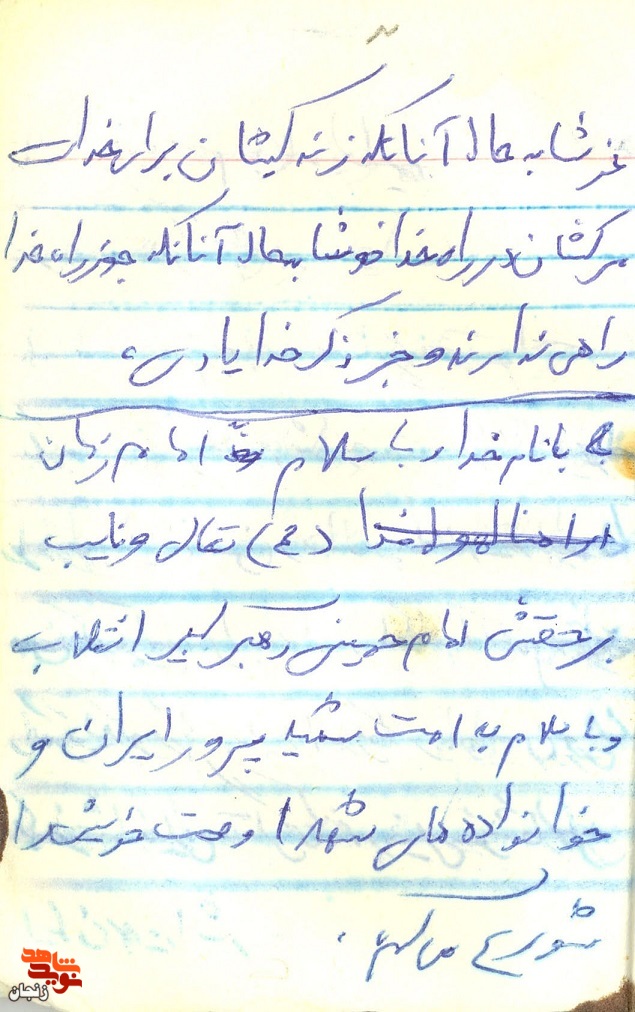 خوشا به حال آنانکه زندگیشان برای خدا
مرگشان در راه خدا خوشا بحال آنانکه جز راه خدا
راهی ندارند و جز ذکر خدا یادی،
با نام خدا و با سلام امام زمان
(عج) تعالی و نایب
برحقش امام خمینی رهبر کبیر انقلاب
و با سلام به امت شهید پرور ایران و
خوانواده های شهدا وصیت خود را
شروع می کنم.
نوید شاهد
زنجان